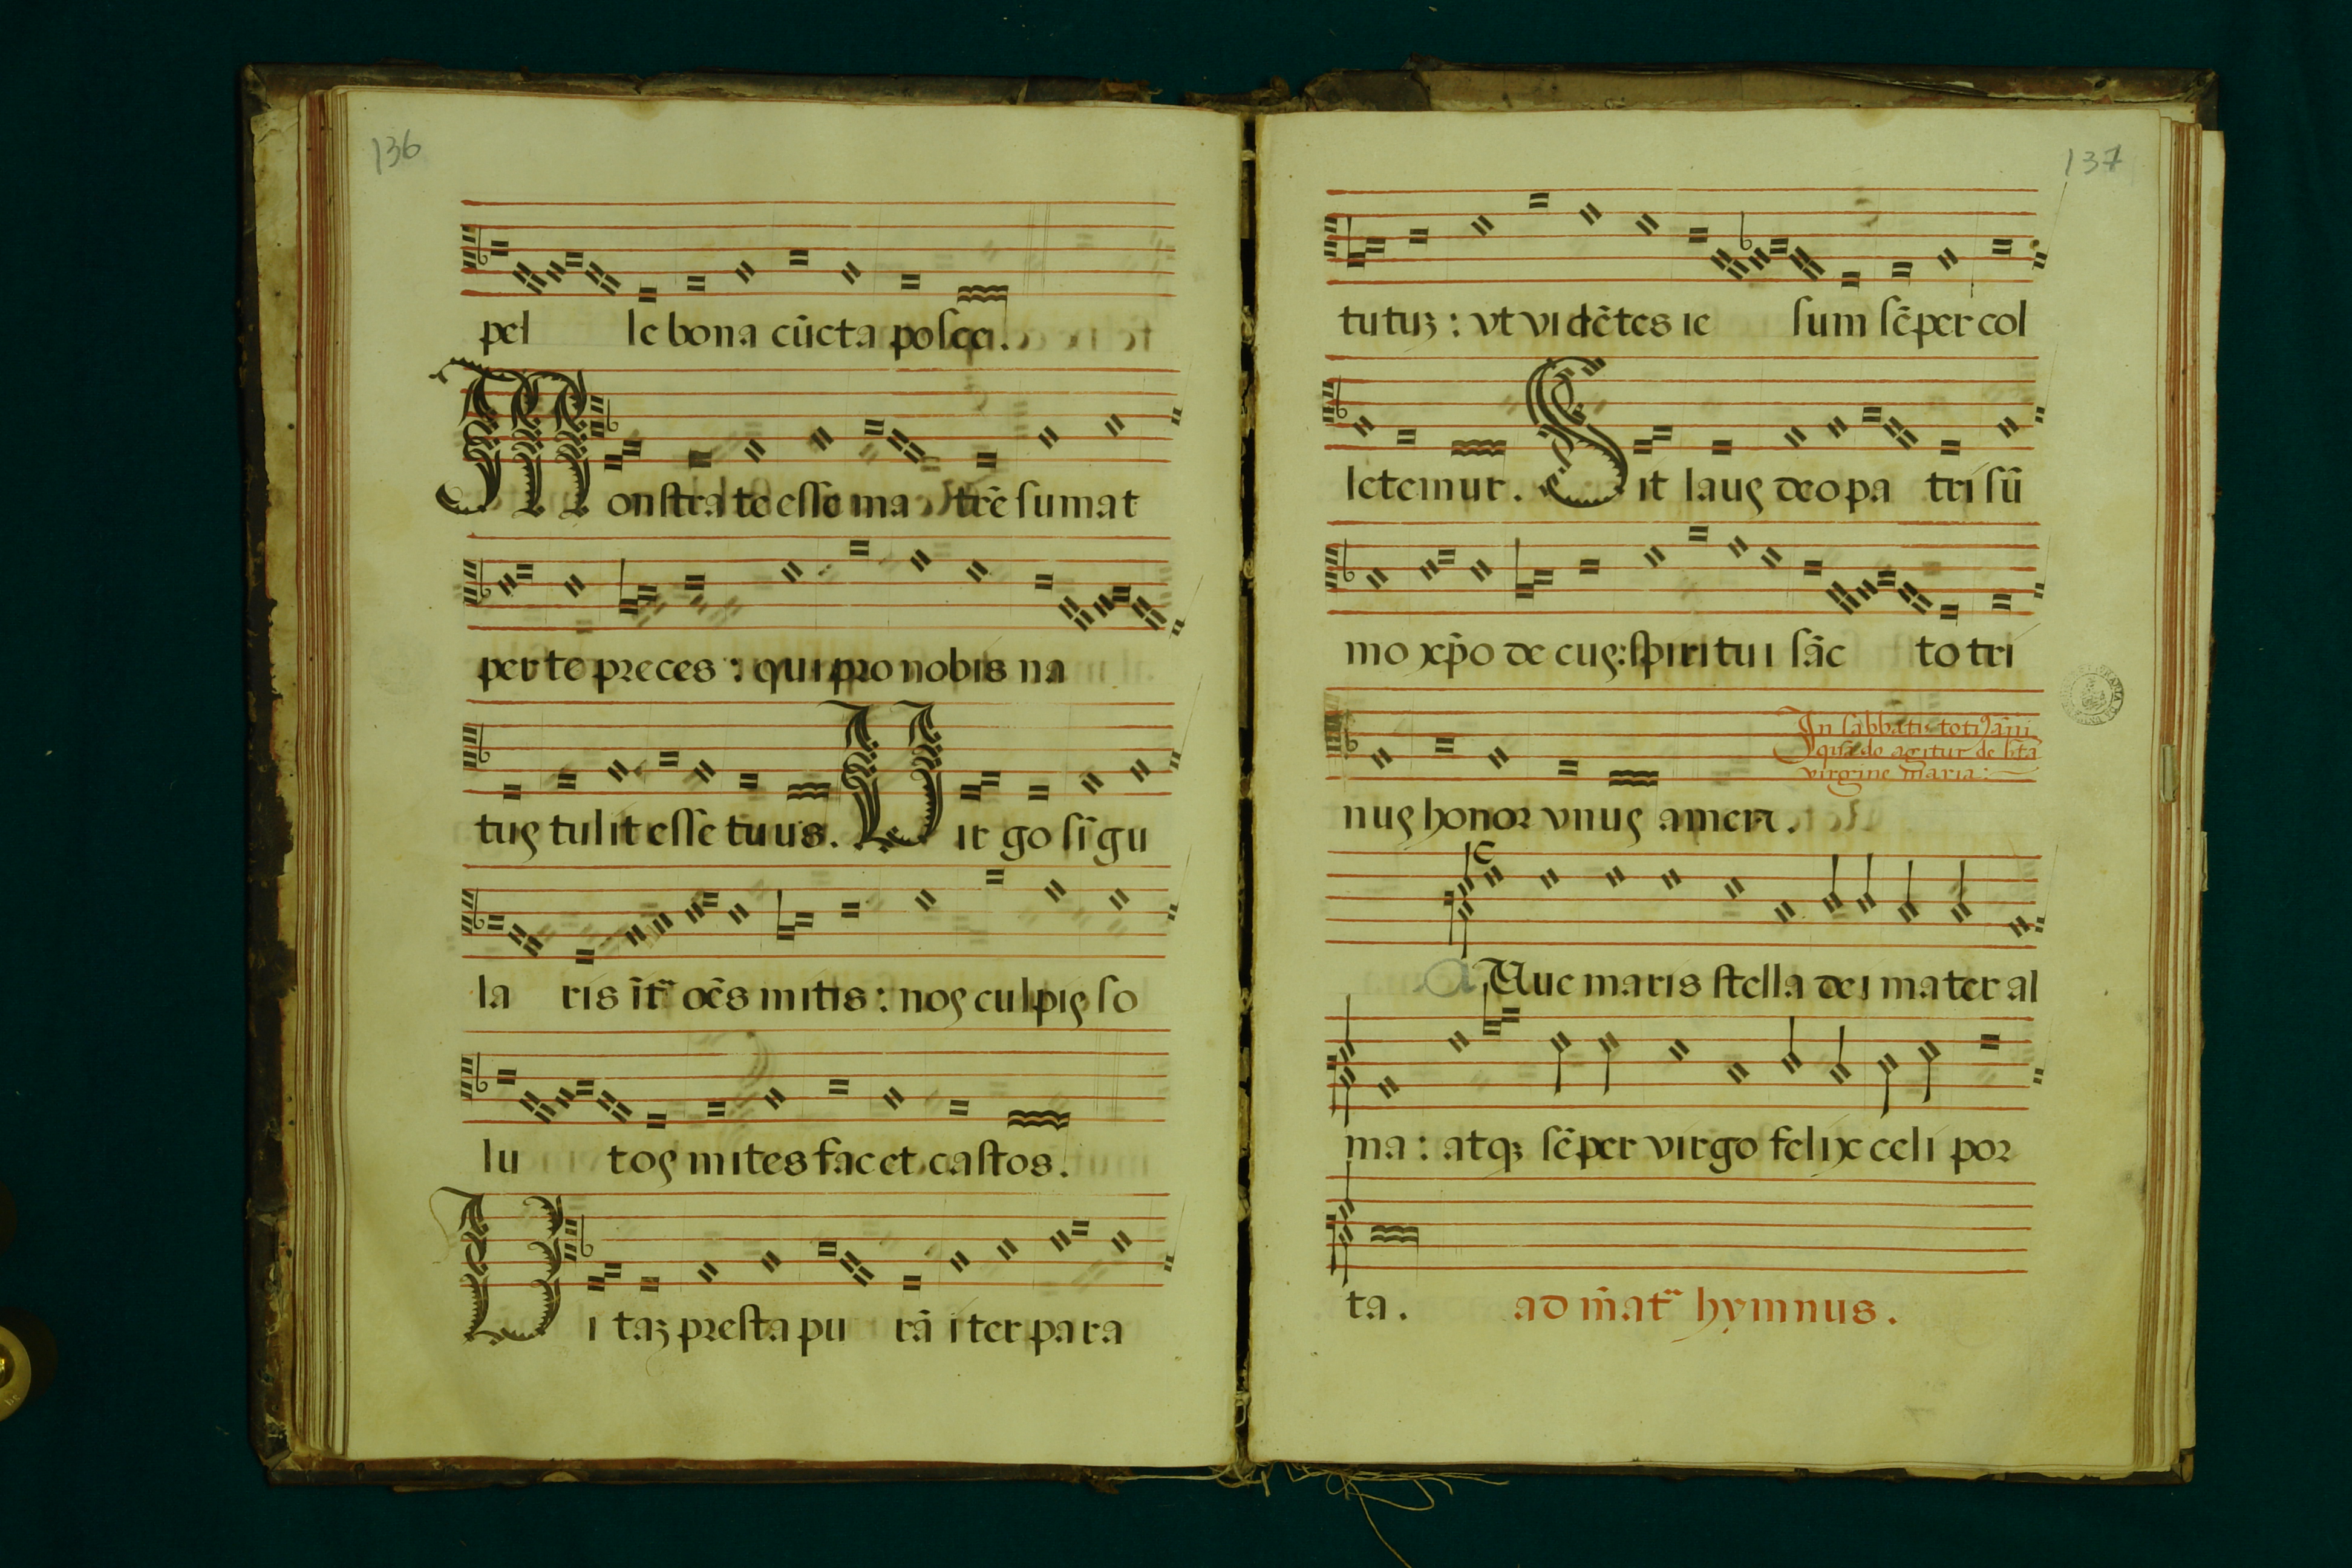 136
pel le bona cūcta posce.
Monstra te esse ma trē sumat
per te preces : qui pro nobis na
tus tulit esse tuus. Uir go sīgu
la ris īt᷑ oēs mitis : nos culpis so
lu tos mites fac et castos.
Ui taꝫ presta pu rā iter para
137
tutuꝫ : vt vidētes ie sum sēper col
letemur. Sit laus deo pa tri sū
mo xp̄o de cus: spiritui sāc to tri
In sabbatis totiꝰ āni
quādo agitur de sc̄ta
virgine maria:
nus honor vnus amen.
Aue maris stella dei mater al
ma : atqꝫ sēper virgo felix celi por
ta. ad māt᷑ hymnus.